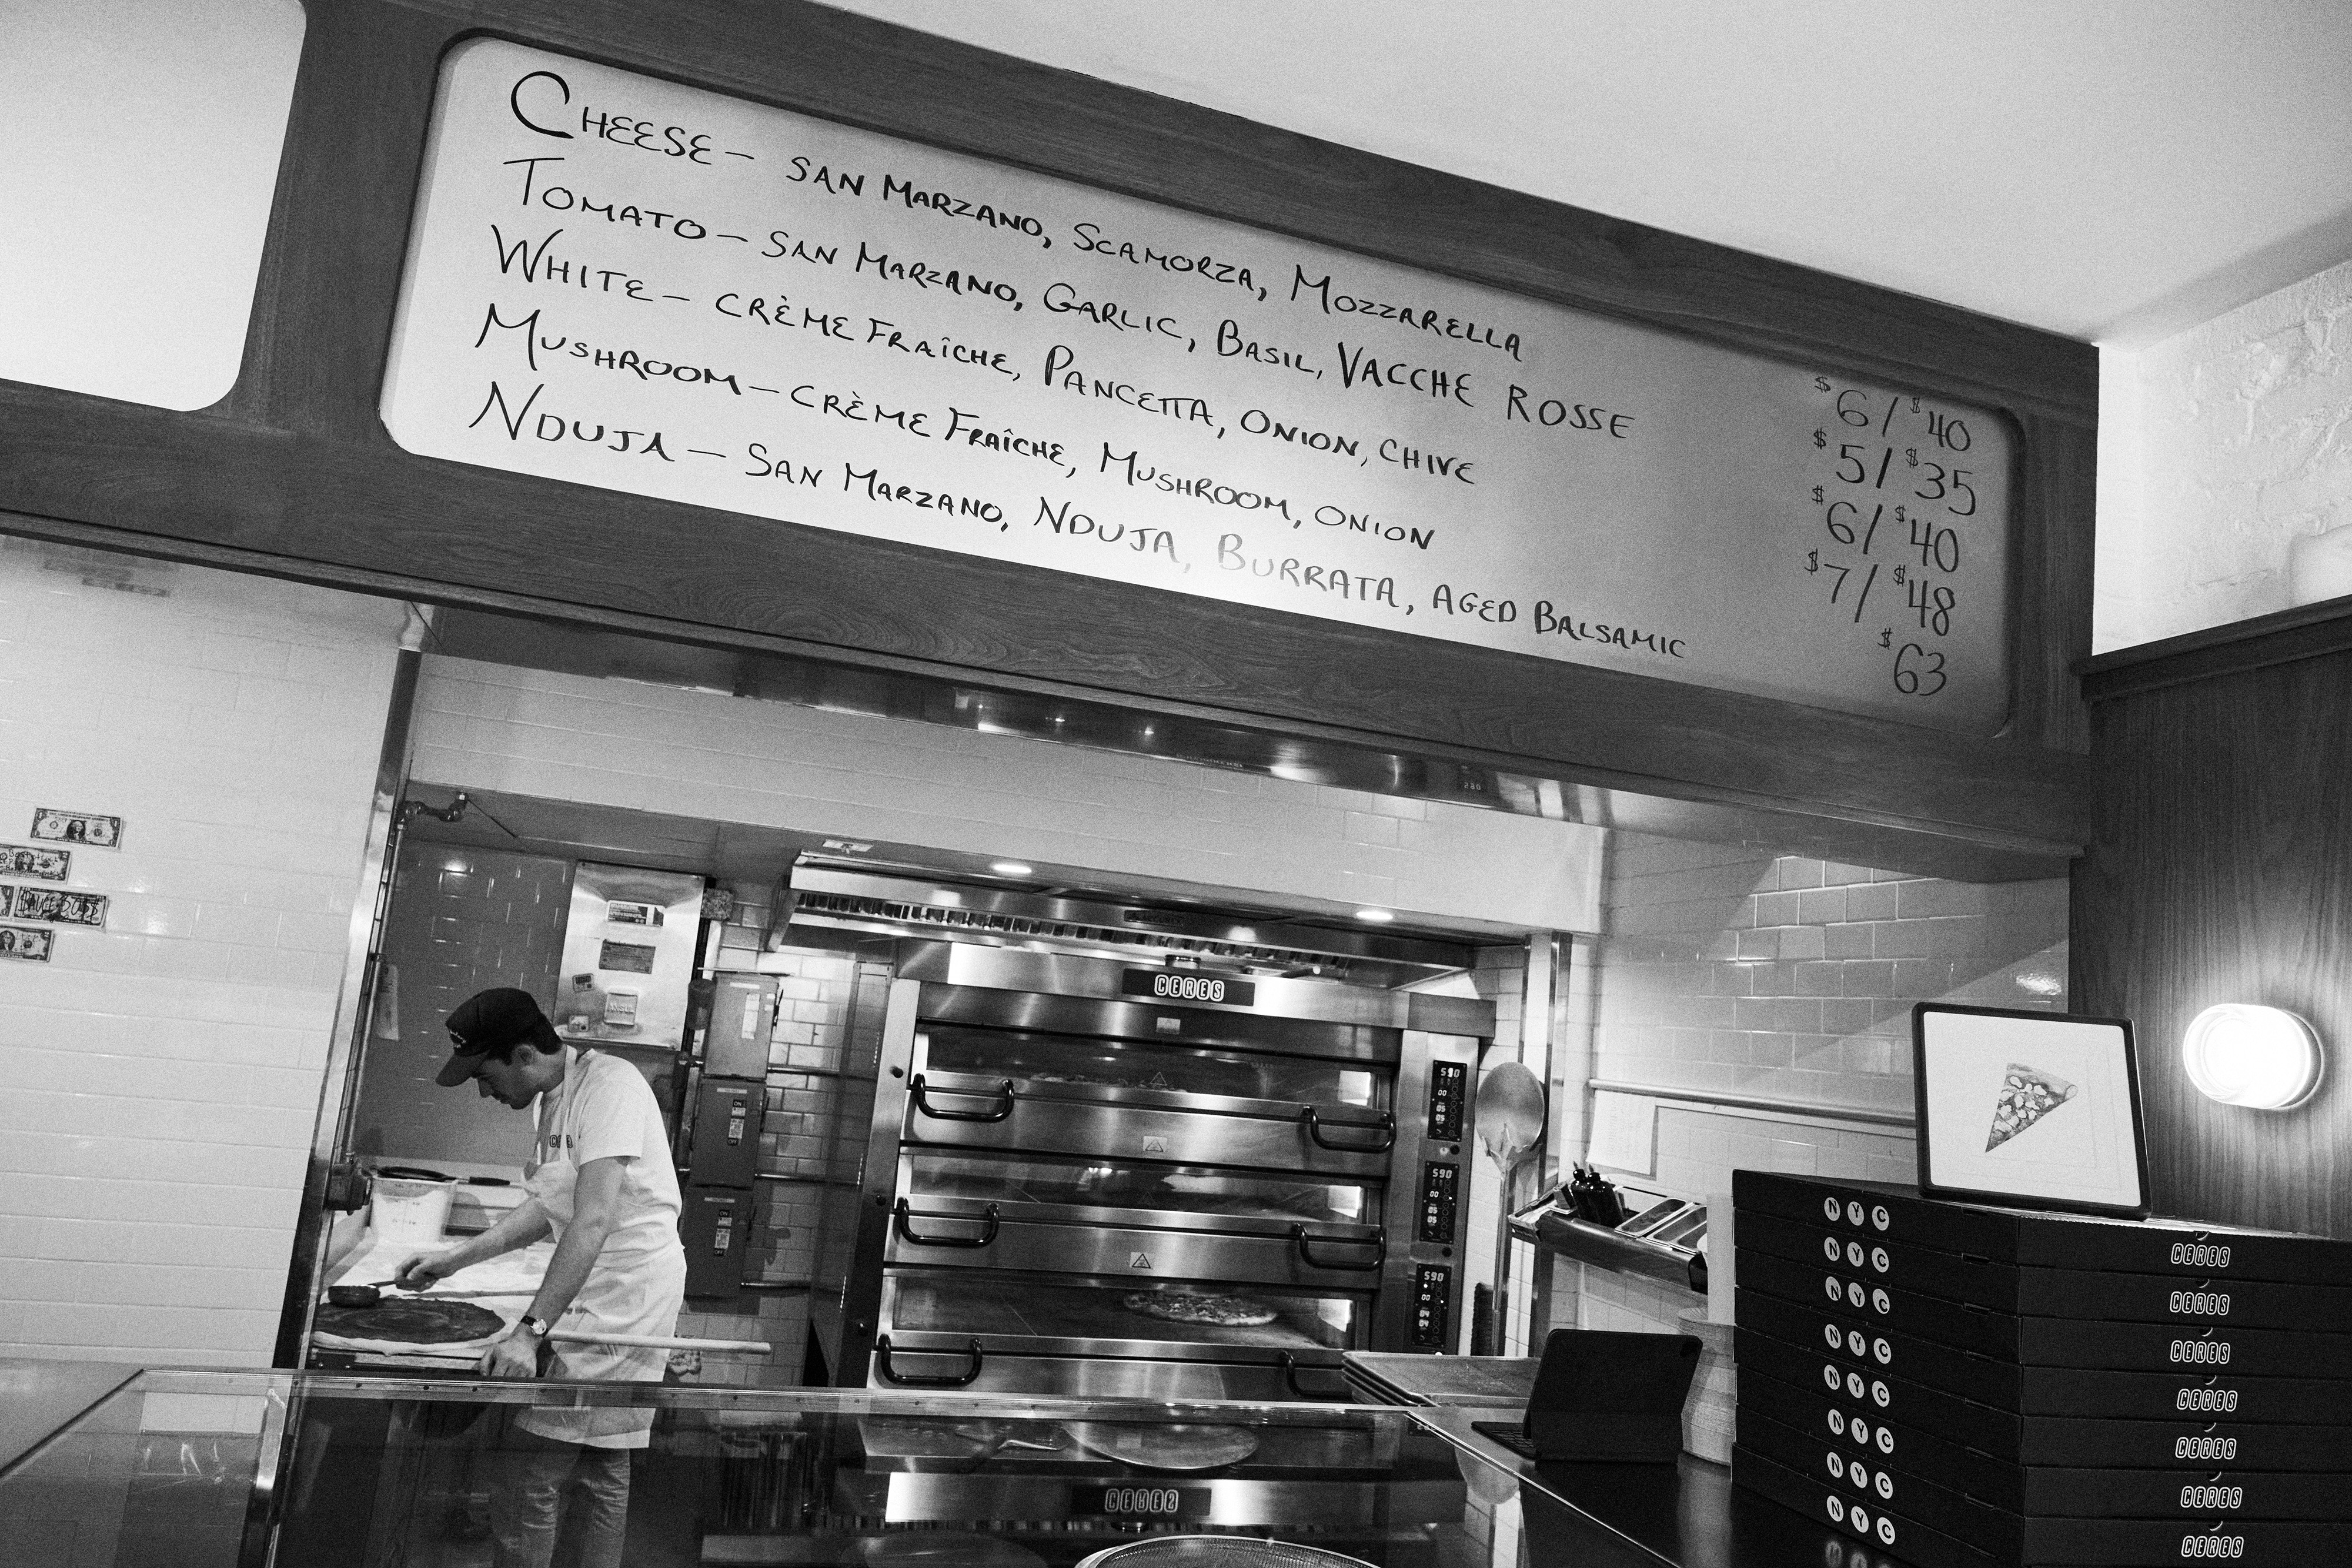 CHEESE — SAN MARZANO, SCAMORZA, MOZZARELLA $6/$40
TOMATO — SAN MARZANO, GARLIC, BASIL, VACCHE ROSSE $5/$35
WHITE — CRÈME FRAÎCHE, PANCETTA, ONION, CHIVE $6/$40
MUSHROOM — CRÈME FRAÎCHE, MUSHROOM, ONION $7/$48
NDUJA — SAN MARZANO, NDUJA, BURRATA, AGED BALSAMIC $63
CERES
590
590
590
NYC CERES
NYC CERES
NYC CERES
NYC CERES
NYC CERES
NYC CERES
NYC CERES
NYC